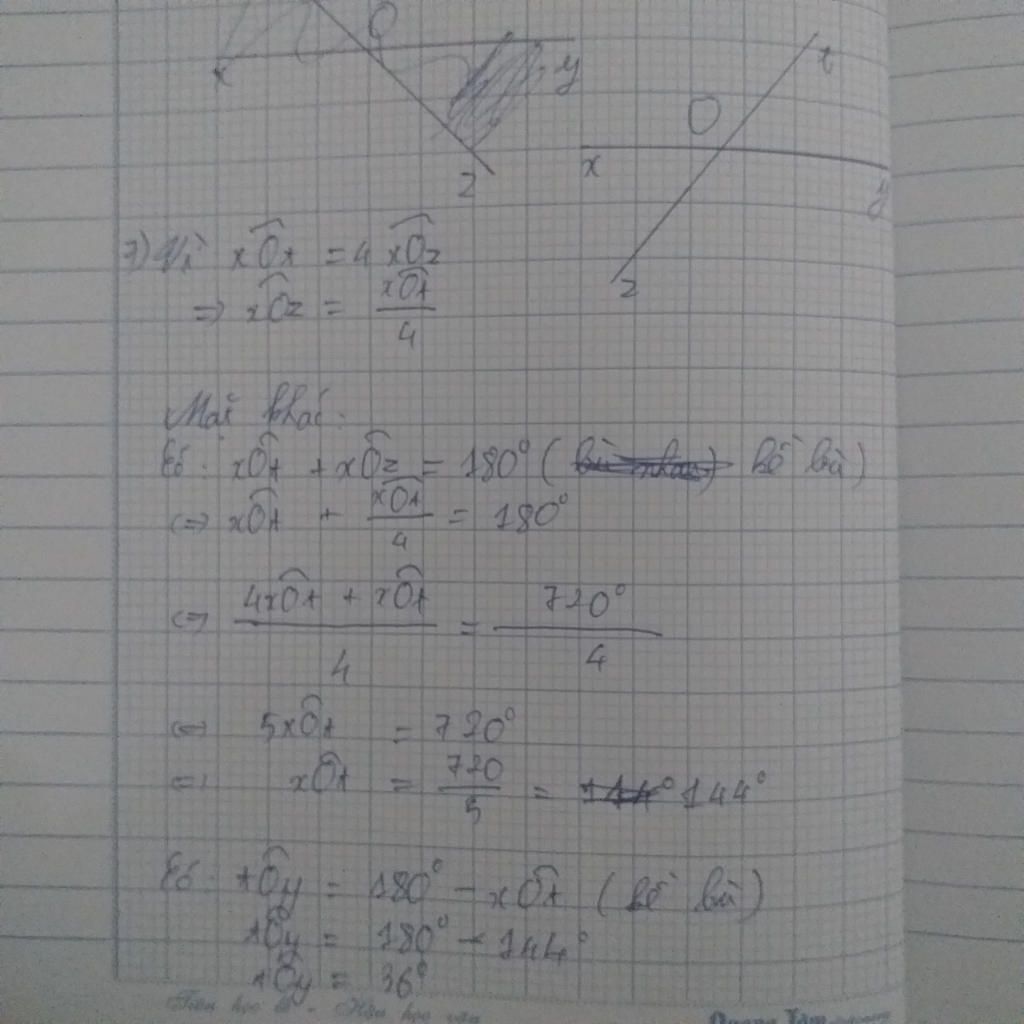 O
x
y
z
O
t
x
y
z
7) Vì xOt = 4 xOz
=> xOz = xOt/4
Mặt khác:
Có: xOt + xOz = 180° (kề bù)
<=> xOt + xOt/4 = 180°
<=> 4xOt + xOt / 4 = 720° / 4
<=> 5xOt = 720°
<=> xOt = 720/5 = 144°
Có: tOy = 180° - xOt (kề bù)
tOy = 180° - 144°
tOy = 36°
Tiên học lễ - Hậu học văn